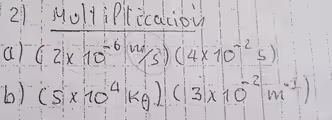 2) Multiplicación
a) (2x10⁻⁶ m/s) (4x10⁻² s)
b) (5x10⁴ Kg) (3x10⁻² m⁻³)